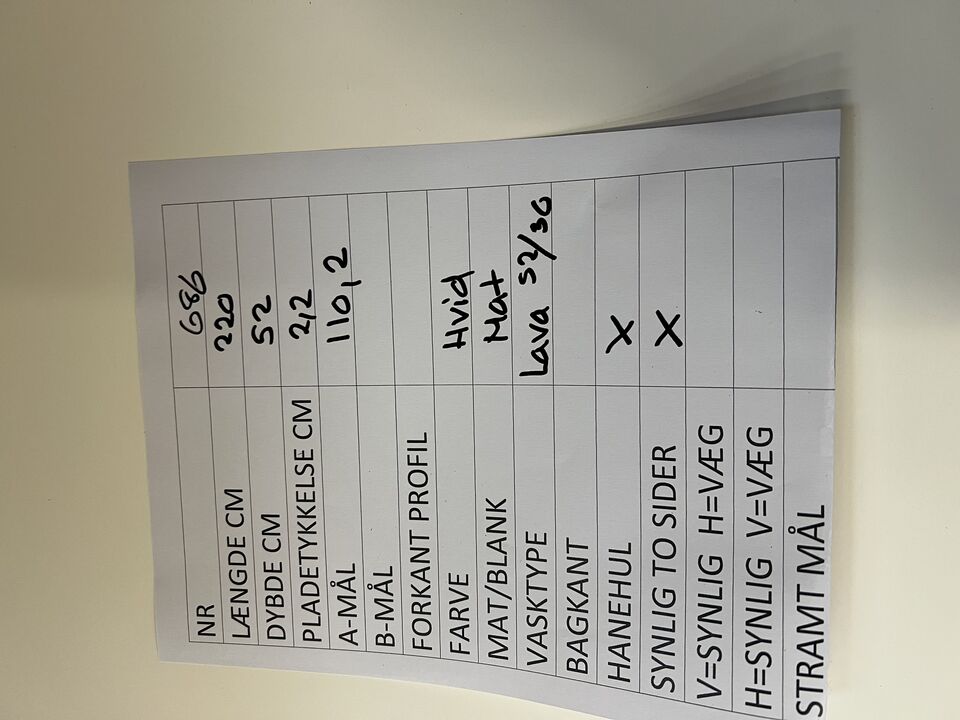 NR 686
LÆNGDE CM 220
DYBDE CM 52
PLADETYKKELSE CM 2,2
A-MÅL 110,2
B-MÅL
FORKANT PROFIL
FARVE Hvid
MAT/BLANK Mat
VASKTYPE Lava 52/36
BAGKANT
HANEHUL X
SYNLIG TO SIDER X
V=SYNLIG H=VÆG
H=SYNLIG V=VÆG
STRAMT MÅL